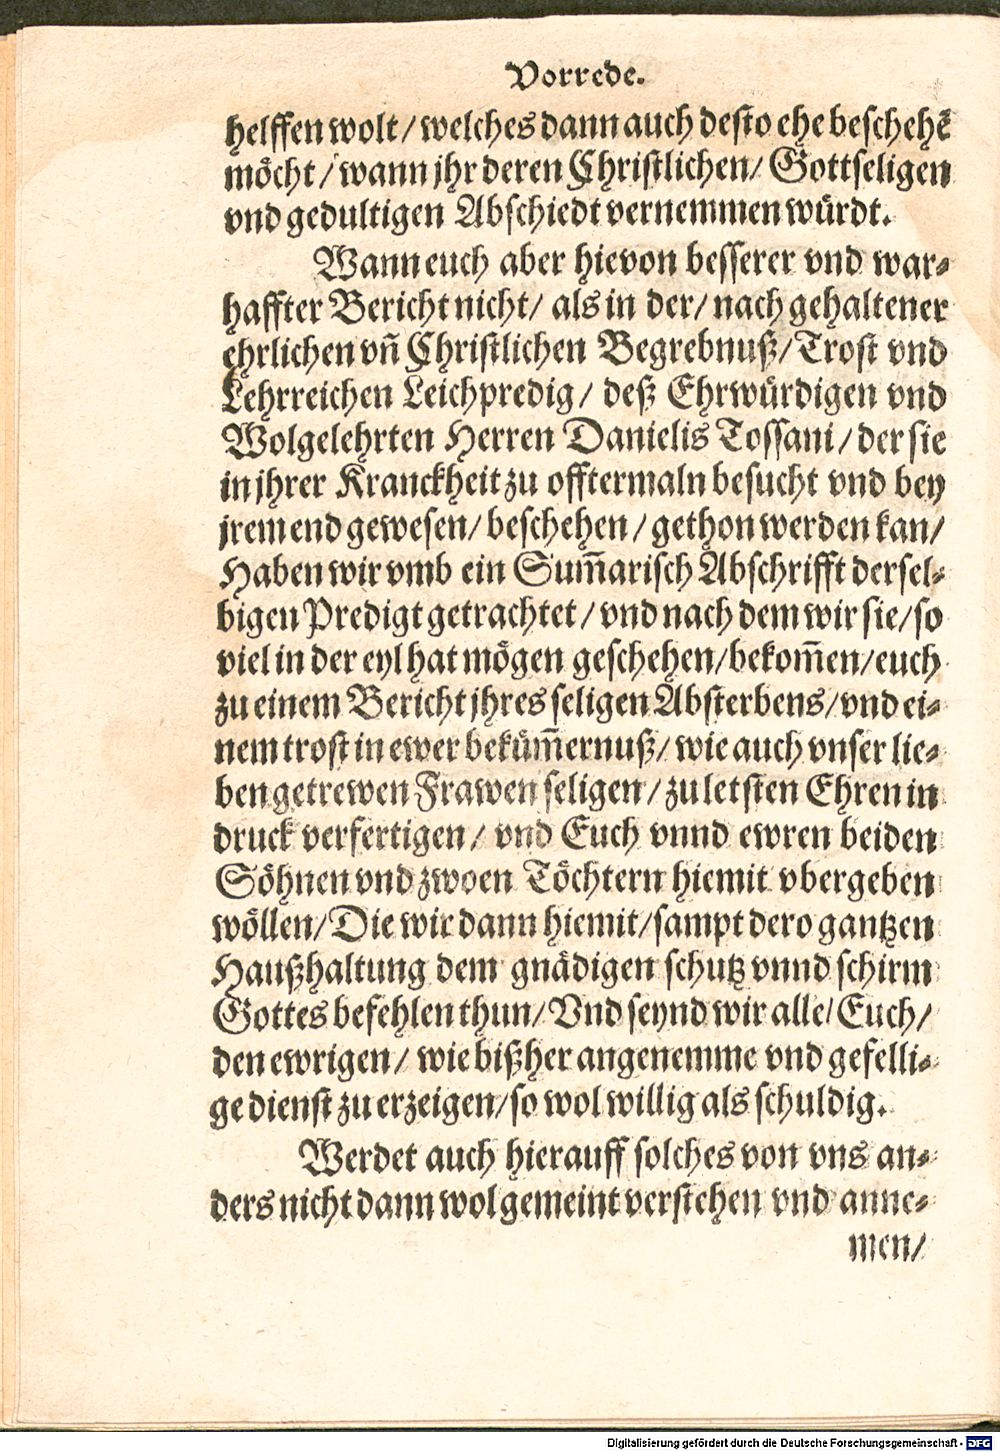 Vorrede.
helffen wolt / welches dann auch desto ehe beschehẽ
möcht / wann jhr deren Christlichen / Gottseligen
vnd gedultigen Abschiedt vernemmen würdt.
Wann euch aber hievon besserer vnd war-
haffter Bericht nicht / als in der / nach gehaltener
ehrlichen vñ Christlichen Begrebnuß / Trost vnd
Lehrreichen Leichpredig / deß Ehrwürdigen vnd
Wolgelehrten Herren Danielis Tossani / der sie
in jhrer Kranckheit zu offtermaln besucht vnd bey
jrem end gewesen / beschehen / gethon werden kan /
Haben wir vmb ein Sum̃arisch Abschrifft dersel-
bigen Predigt getrachtet / vnd nach dem wir sie / so
viel in der eyl hat mögen geschehen / bekom̃en / euch
zu einem Bericht jhres seligen Absterbens / vnd ei-
nem trost in ewer beküm̃ernuß / wie auch vnser lie-
ben getrewen Frawen seligen / zu letsten Ehren in
druck verfertigen / vnd Euch vnnd ewren beiden
Söhnen vnd zwoen Töchtern hiemit vbergeben
wöllen / Die wir dann hiemit / sampt dero gantzen
Haußhaltung dem gnädigen schutz vnnd schirm
Gottes befehlen thun / Vnd seynd wir alle / Euch /
den ewrigen / wie bißher angenemme vnd gefelli-
ge dienst zu erzeigen / so wol willig als schuldig.
Werdet auch hierauff solches von vns an-
ders nicht dann wol gemeint verstehen vnd anne-
men /
Digitalisierung gefördert durch die Deutsche Forschungsgemeinschaft - DFG